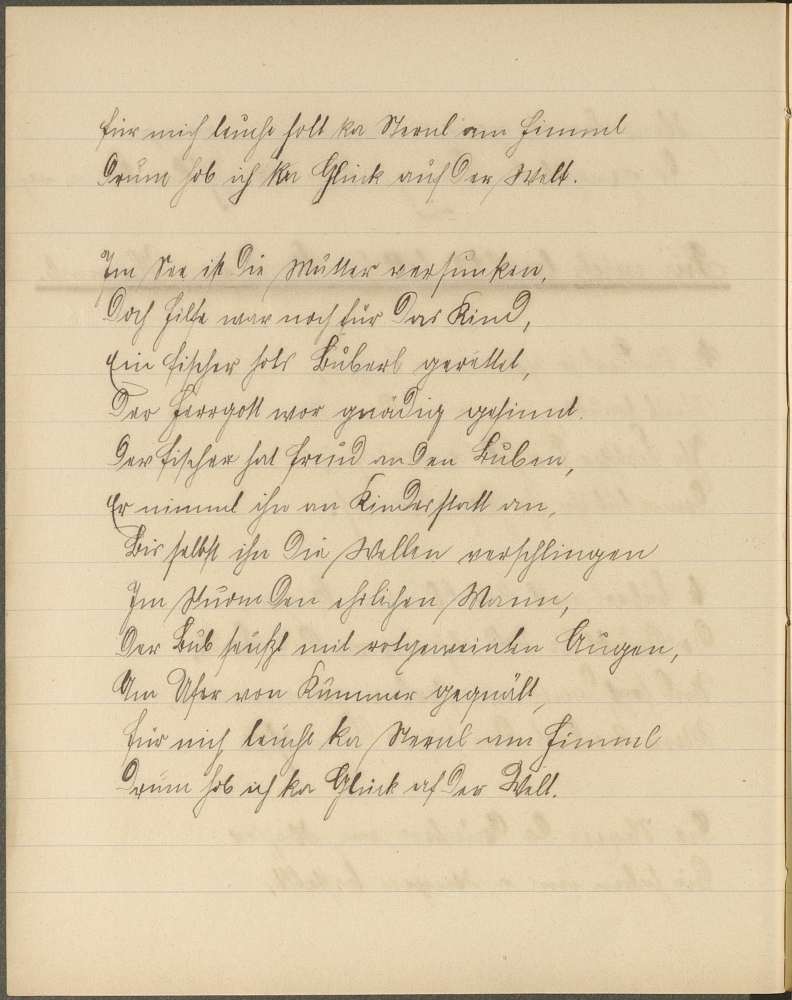 für mich leucht holt ka Sternl am Himml
Drum hob ich ka Glück auf der Welt.
Im See ist die Mutter versunken,
Doch Hilfe war noch für das Kind,
Ein Fischer hots Buberl gerettet,
Der Herrgott wor gnädig gesinnt.
Der Fischer hat Freud an den Buben,
Er nimmt ihn an Kindesstatt an,
Bis selbst ihn die Wellen verschlingen
Im Sturm den ehrlichen Mann,
Der Bub seufzt mit rotgeweinten Augen,
Am Ufer von Kummer gequält,
für mich leucht ka Sternl am Himml
Drum hob ich ka Glück af der Welt.